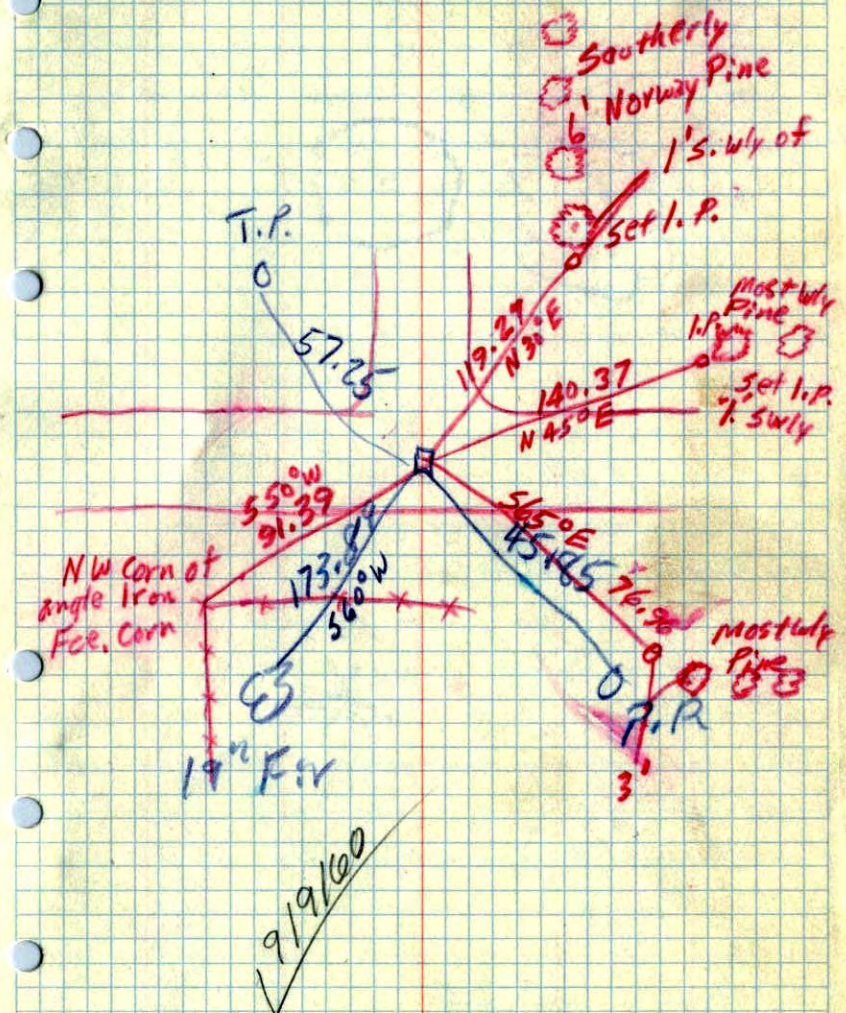 Southerly
6' Norway Pine
1' S. wly of
Set I.P.
T.P.
57.25
119.27
N 30° E
Most wly
Pine
I.P.
140.37
N 45° E
Set I.P.
1' Swly
S 50° W
91.39
S 65° E
45.85
76.96
NW Corn of
angle Iron
Fce. Corn
173.89
S 60° W
Most wly
Pine
P.P.
3'
19" Fir
919160